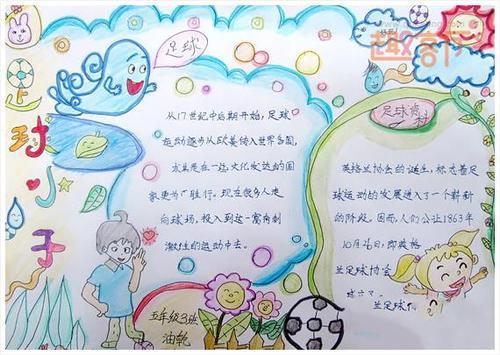 足球
小
手
从17世纪中后期开始，足球
运动逐步从欧美传入世界各国，
尤其是在一些文化发达的国
家更为广胜行。现在很多人走
向球场，投入到这一富有刺
激性的运动中去。
五年级3班
足球资料
英格兰协会的诞生，标志着足
球运动的发展进入了一个崭新
的阶段。因而，人们公认1863年
10月26日，即英格
兰足球协会
兰足球